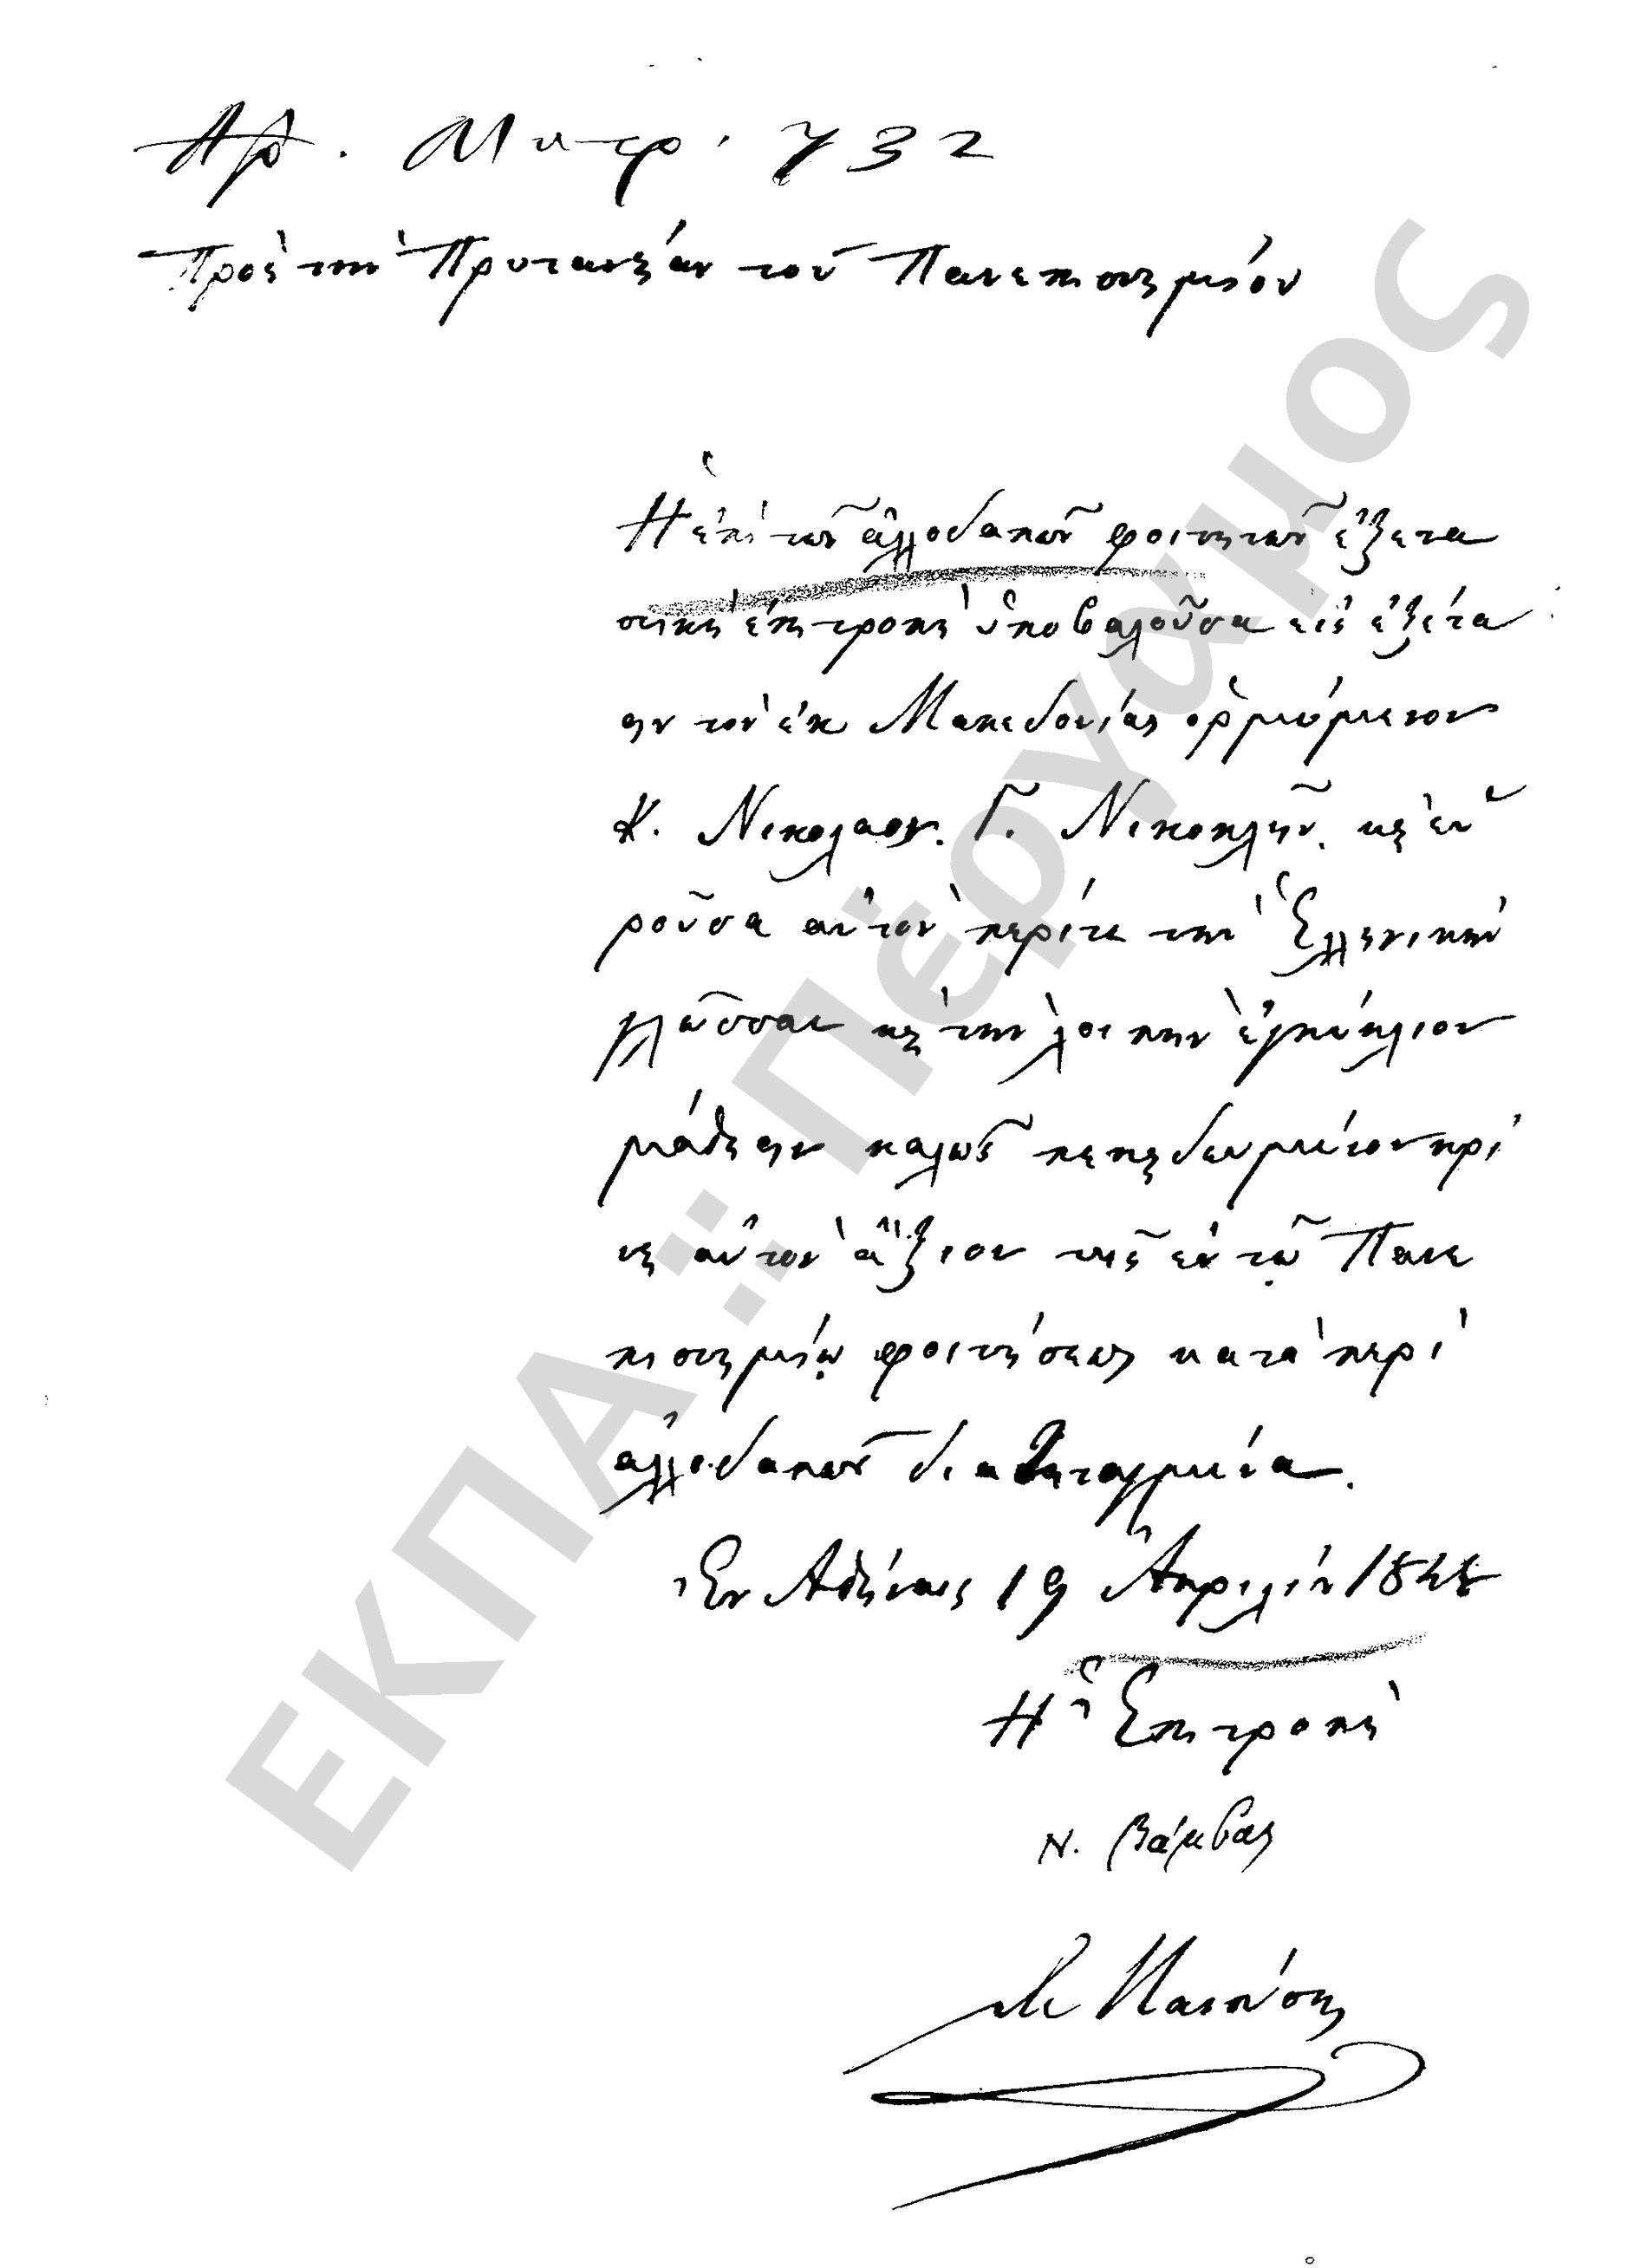 Αρ. Μητρ. 732
Πρὸς τὴν Πρυτανείαν τοῦ Πανεπιστημίου
Ἡ ἐπὶ τῶν ἀλλοδαπῶν φοιτητῶν ἐξετα
στικὴ ἐπιτροπὴ ὑποβαλοῦσα εἰς ἐξέτα
σιν τὸν ἐκ Μακεδονίας ὁρμώμενον
Κ. Νικόλαον Γ. Νικοκλῆν. καὶ εὑ
ροῦσα αὐτὸν περί τε τὴν Ἑλληνικὴν
γλῶσσαν καὶ τὴν λοιπὴν ἐγκύκλιον
μάθησιν καλῶς πεπαιδευμένον κρί
νει αὐτὸν ἄξιον τῆς ἐν τῷ Πανε
πιστημίῳ φοιτήσεως κατὰ περὶ
ἀλλοδαπῶν διατεταγμένα.
Ἐν Ἀθήναις 19 Ἀπριλίου
Ἡ Ἐπιτροπὴ
Ν. Βάμβας
ΕΚΠΑ: Πέργαμος